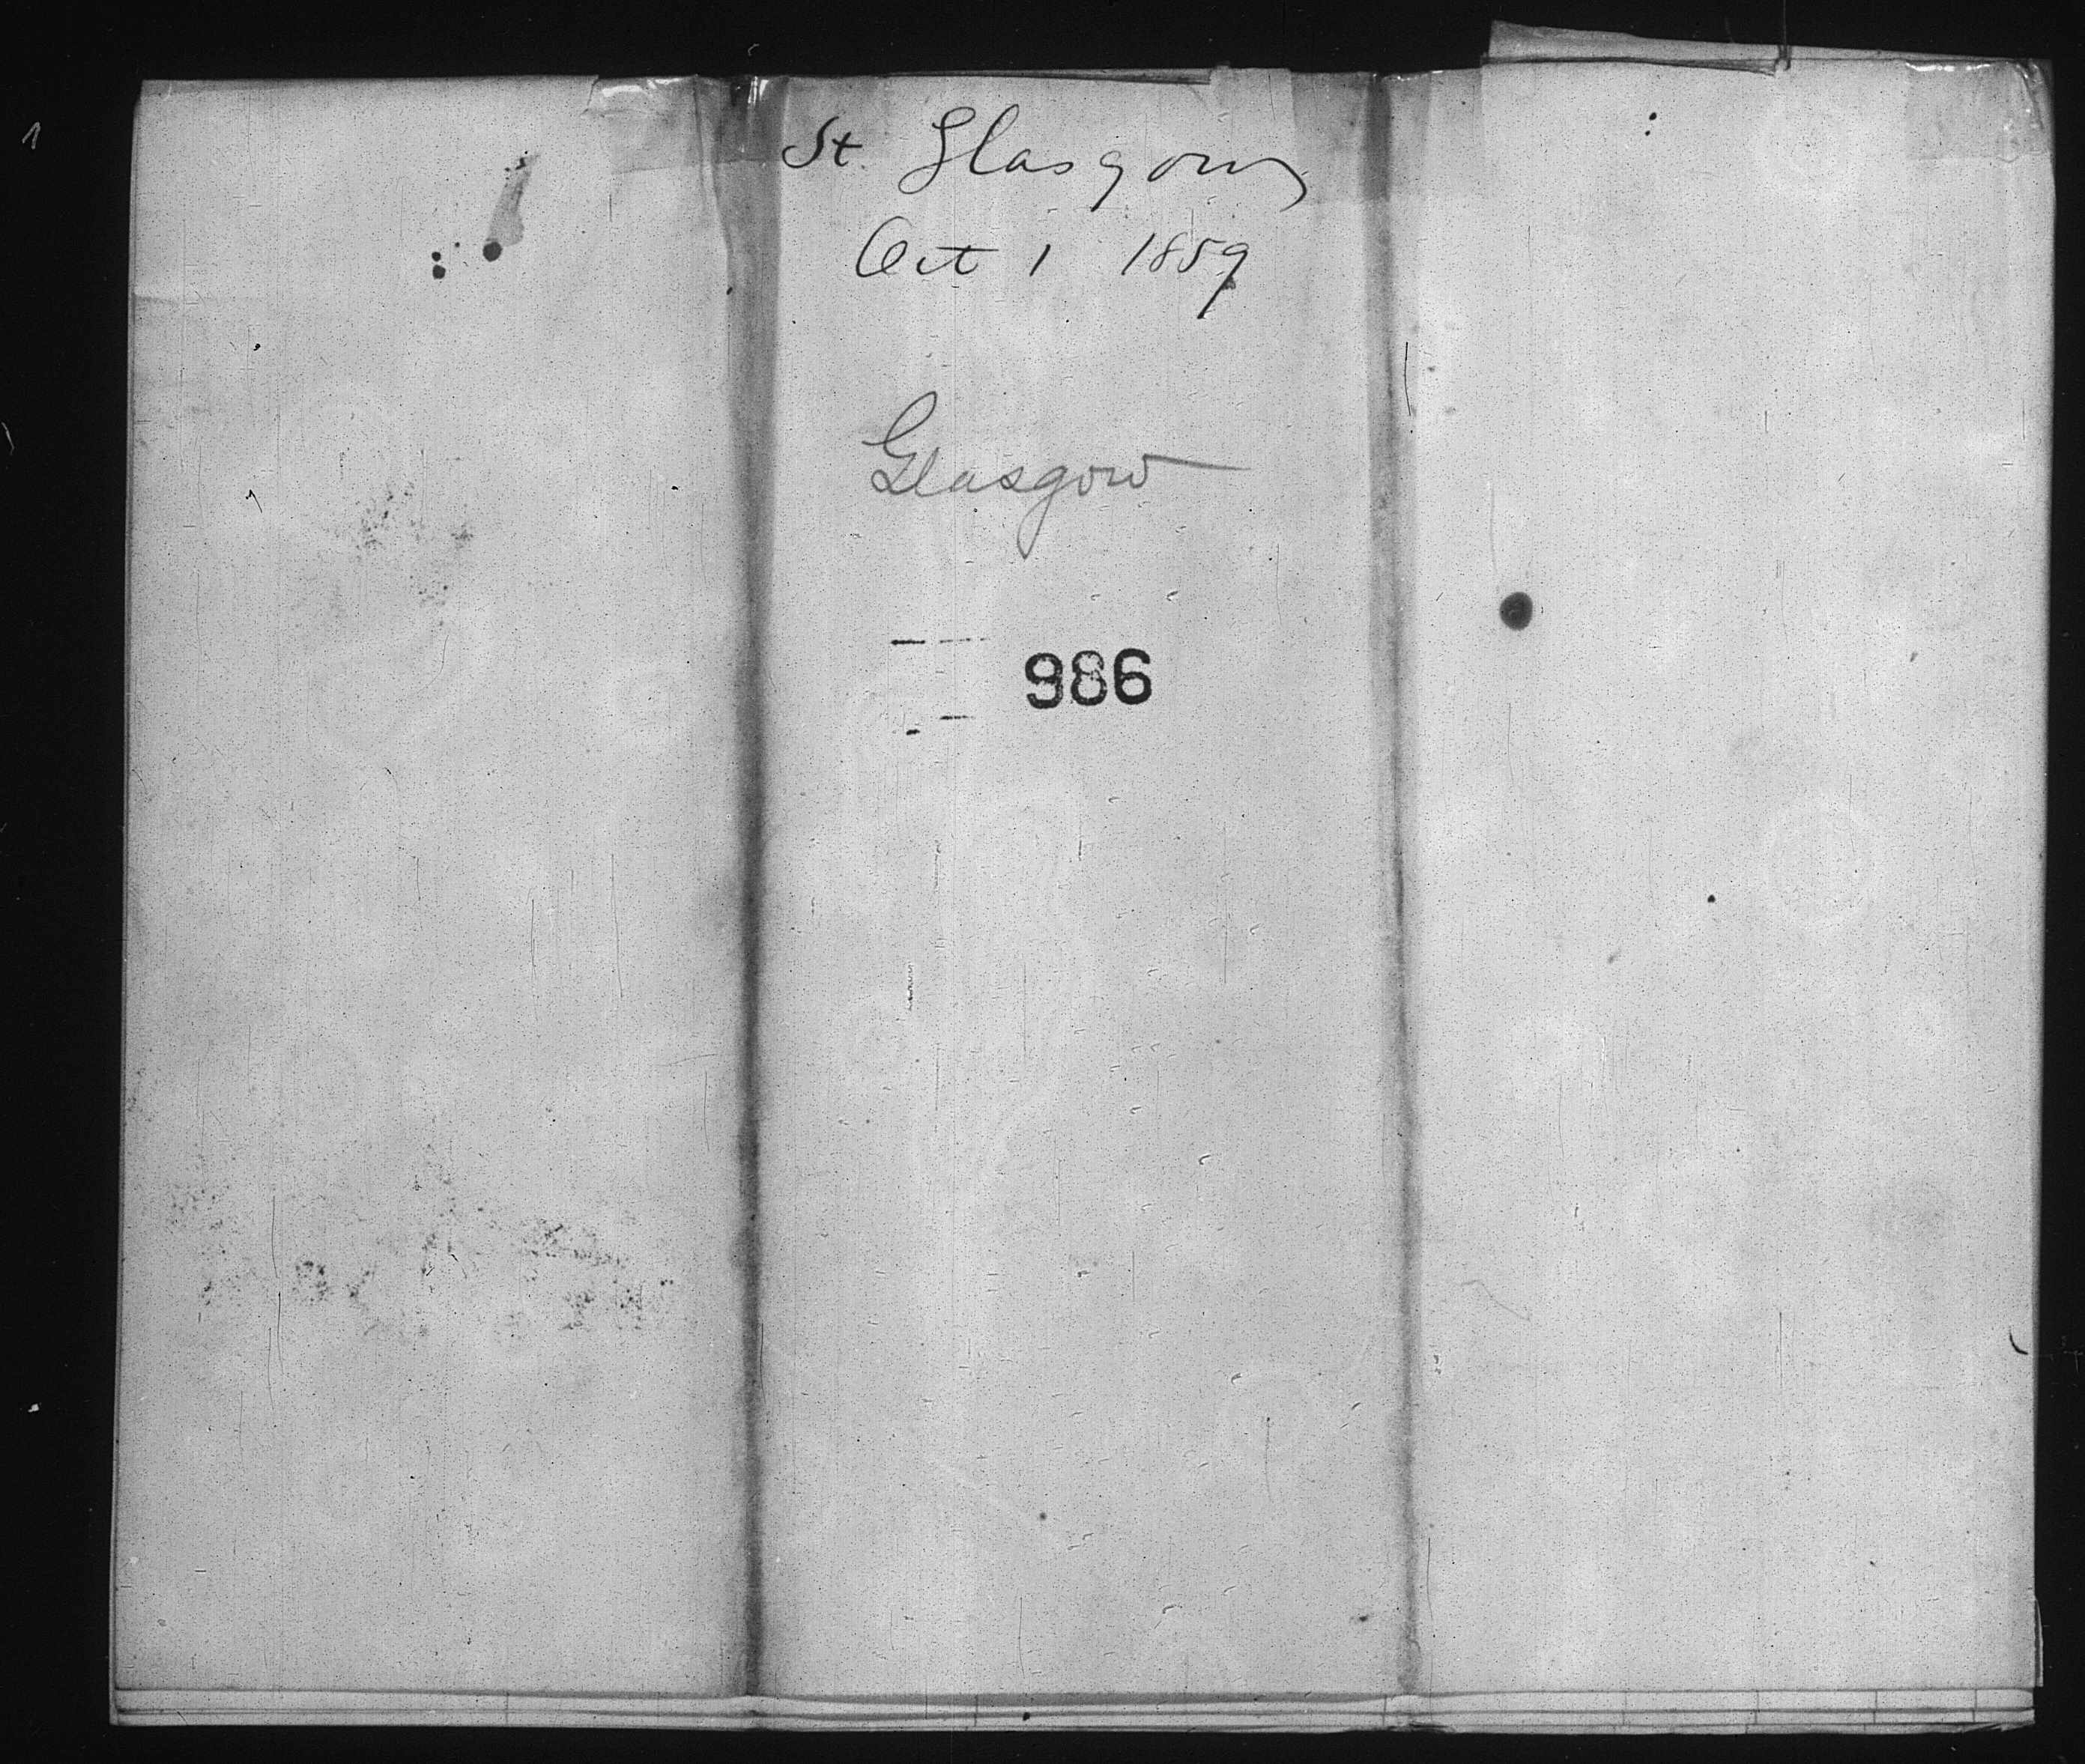 St. Glasgow
Oct 1 1859
Glasgow
986